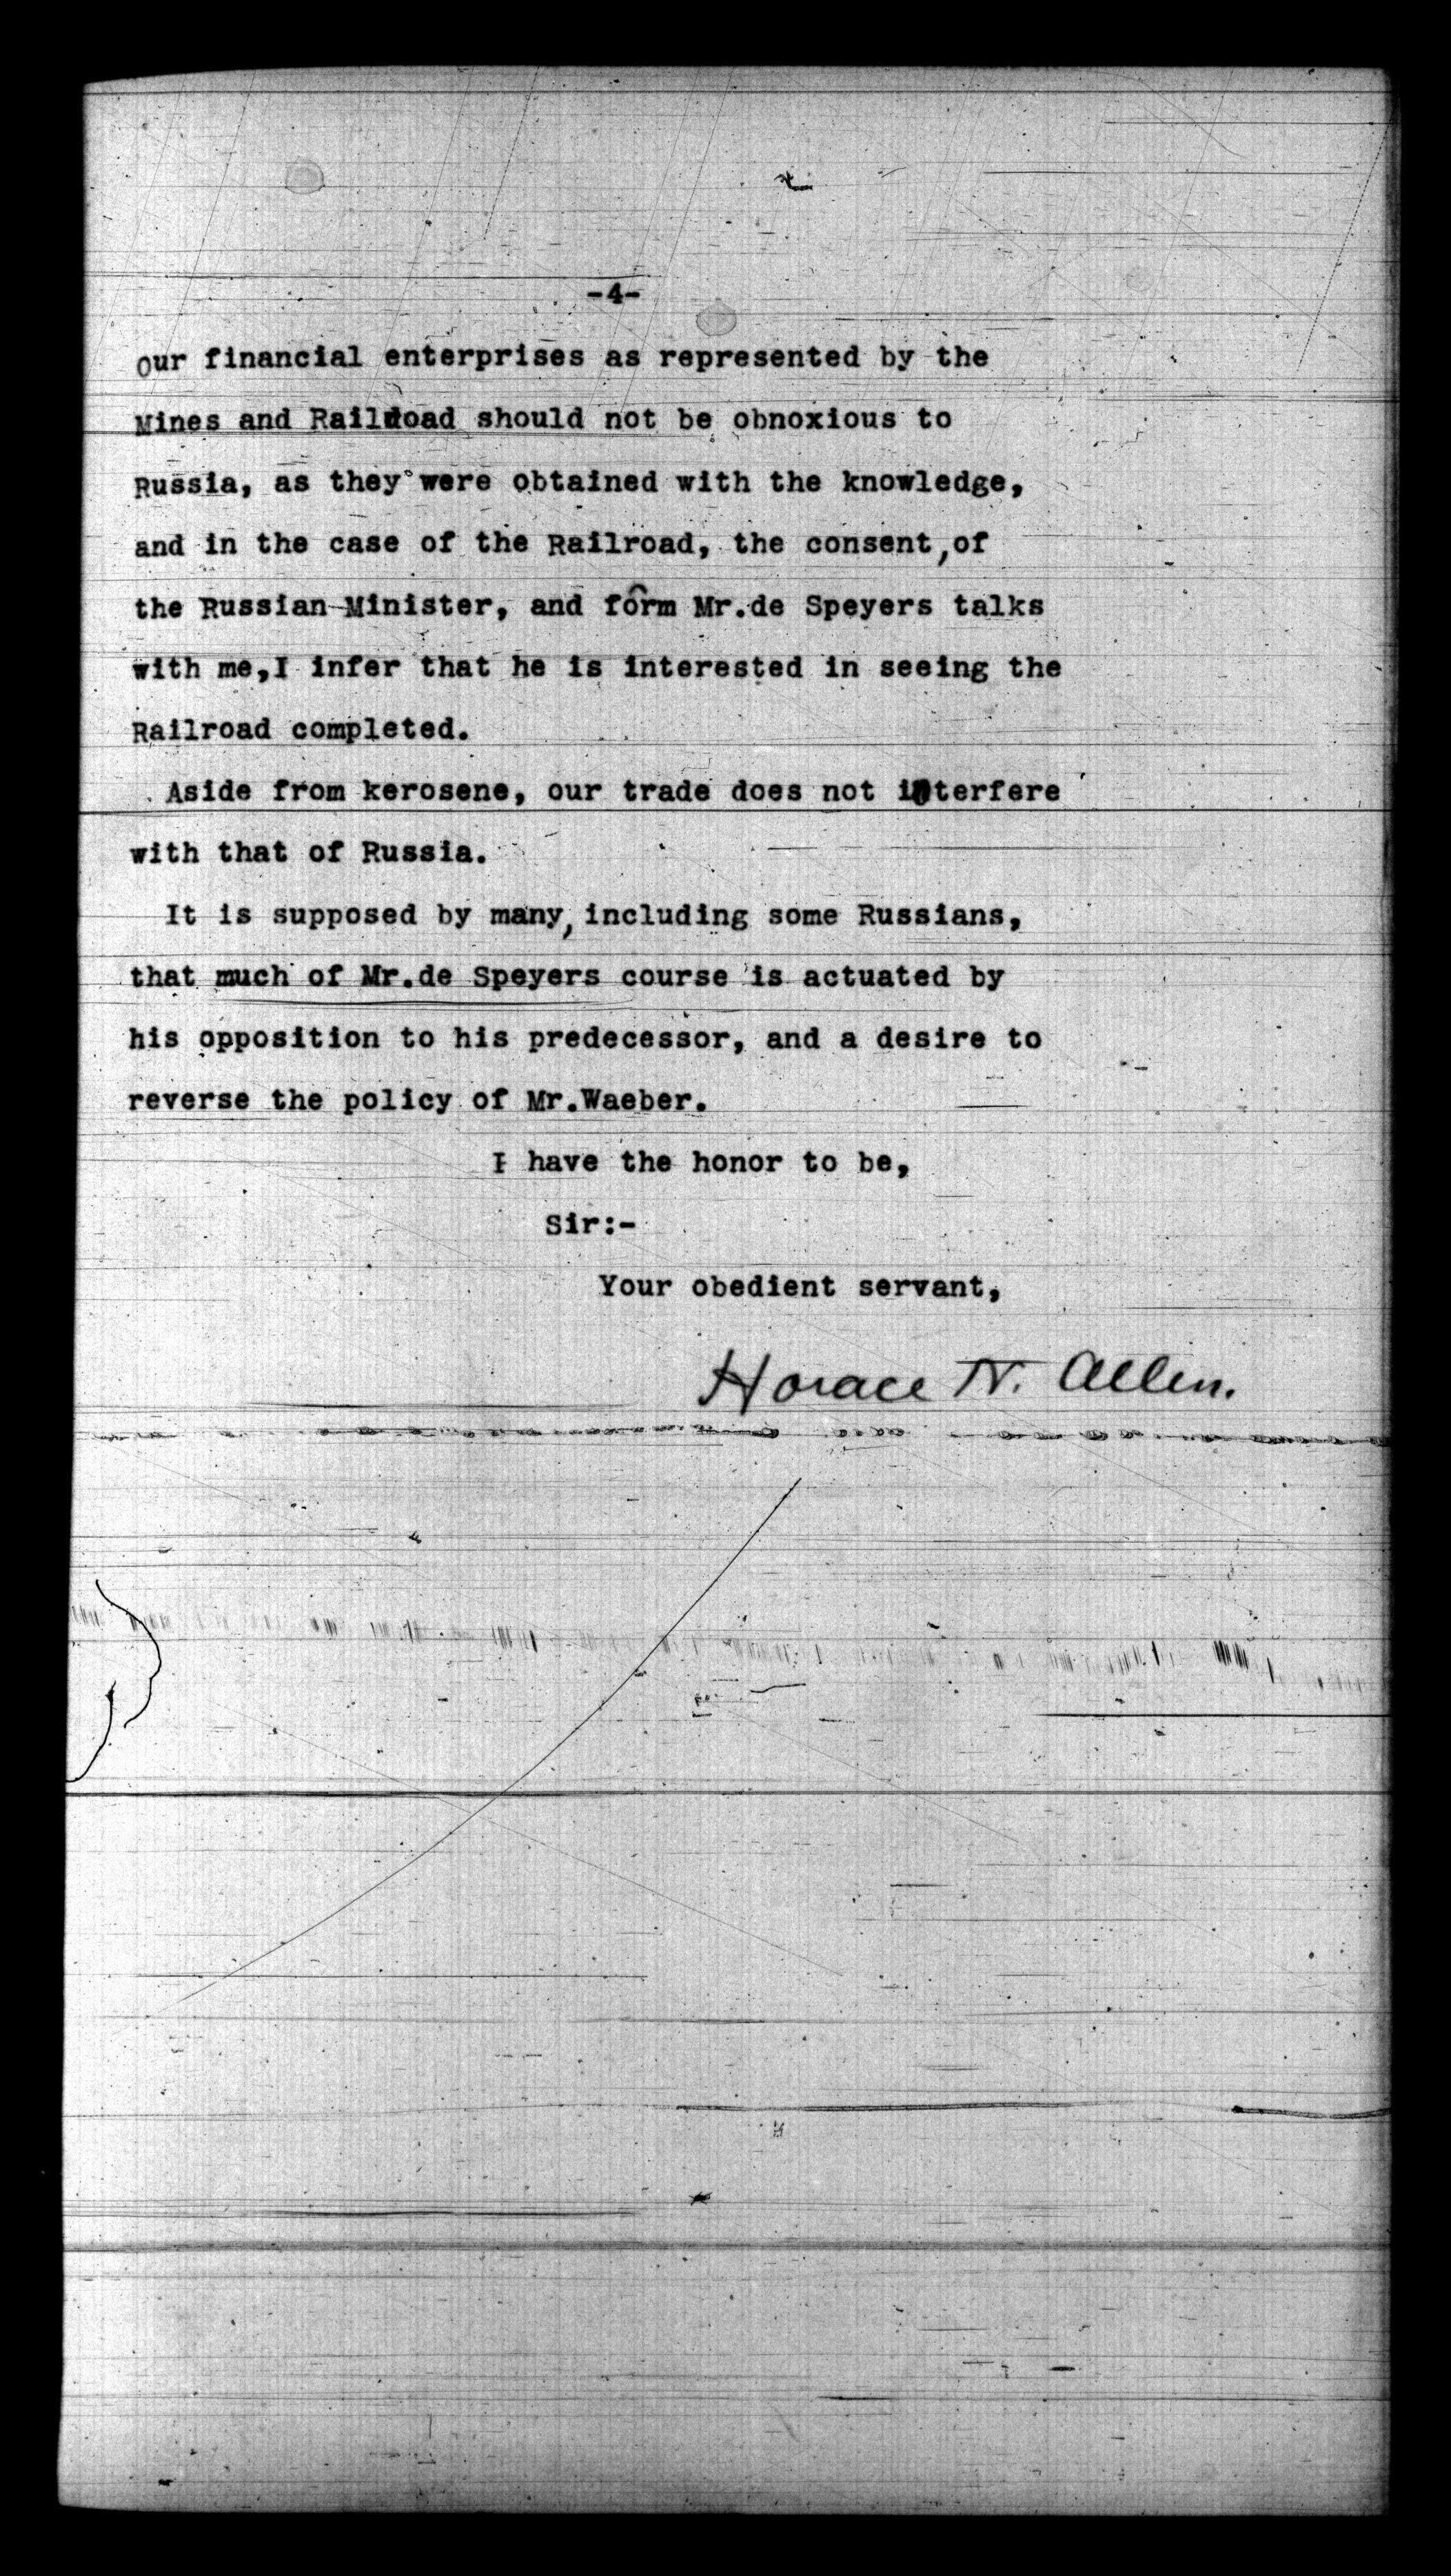 -4-
Our financial enterprises as represented by the
Mines and Railroad should not be obnoxious to
Russia, as they were obtained with the knowledge,
and in the case of the Railroad, the consent, of
the Russian Minister, and form Mr.de Speyers talks
with me,I infer that he is interested in seeing the
Railroad completed.
Aside from kerosene, our trade does not interfere
with that of Russia.
It is supposed by many, including some Russians,
that much of Mr.de Speyers course is actuated by
his opposition to his predecessor, and a desire to
reverse the policy of Mr.Waeber.
I have the honor to be,
Sir:-
Your obedient servant,
Horace N. Allen.